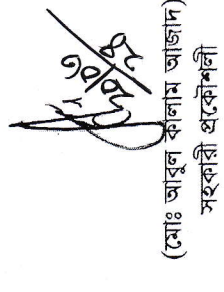 (মোঃ আবুল কালাম আজাদ)
সহকারী প্রকৌশলী